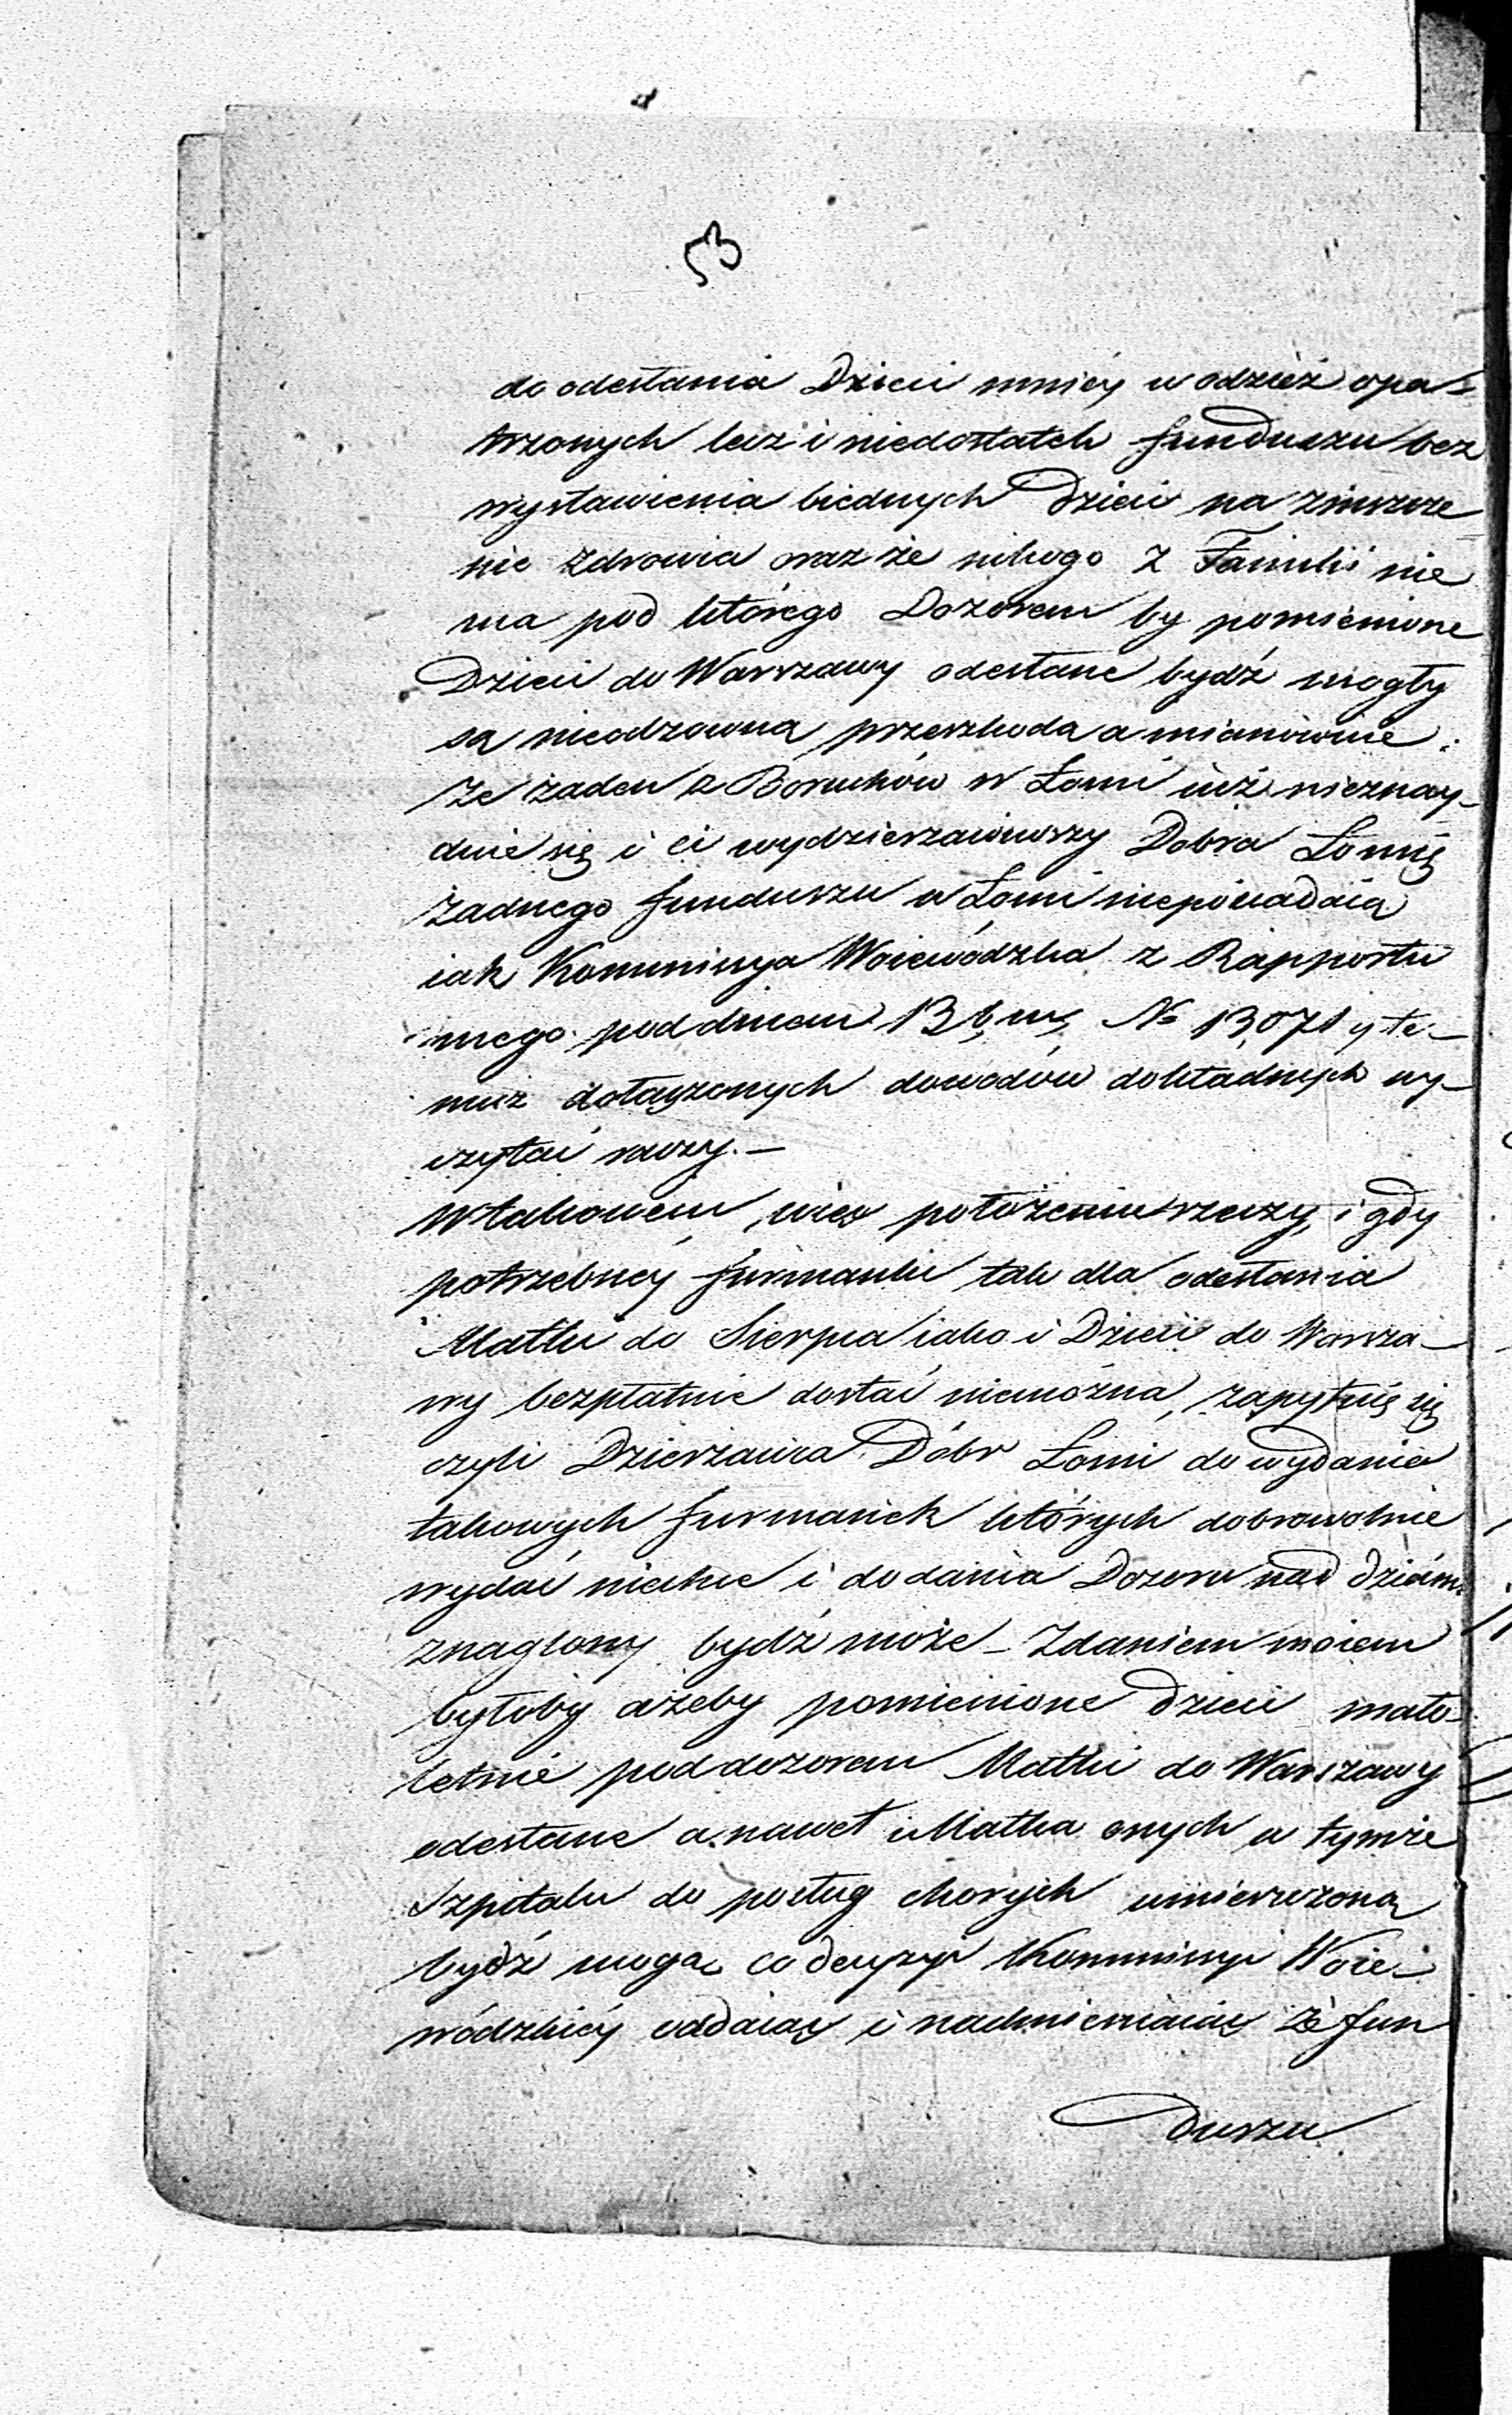 53
do odesłania Dzieci mniéy w odzież opa-
trzonych lecz i niedostatek funduszu bez
wystawienia biednych Dzieci na zniszcze
nie zdrowia oraz że nikogo z Familii nie
ma pod którego Dozorem by pomienione
Dzieci do Warszawy odesłane bydź mogły
są nieodzowną przeszkodą a mianowicie
że żaden z Boruchów w Łomi iuż nieznay-
duie się i ci wydzierzawiwszy Dobra Łomię
żadnego funduszu w Łomi nieposiadaią
iak Kommissya Woiewódzka z Rapportu
mego pod dniem 13 b, m, N 13,071 y te-
muż dołączonych dowodów dokładnych wy-
czytać raczy. —
W takowem więc położeniu rzeczy, i gdy
potrzebnéy furmanki tak dla odesłania
Matki do Sierpca iako i Dzieci do Warsza-
wy bezpłatnie dostać niemożna, zapytuię się
czyli Dzierzawca Dóbr Łomi do wydania
takowych furmanek których dobrowolnie
wydać niechce i do dania Dozoru nad dziećmi
znaglony bydź może — Zdaniem moiem
byłoby ażeby pomienione dzieci mało-
letnie pod dozorem Matki do Warszawy
odesłane a nawet i Matka onych w tymże
Szpitalu do posług chorych umieszczoną
bydź mogą, co decyzyi Kommissyi Woie-
wódzkiéy oddaiąc i nadmieniaiąc że fun
duszu